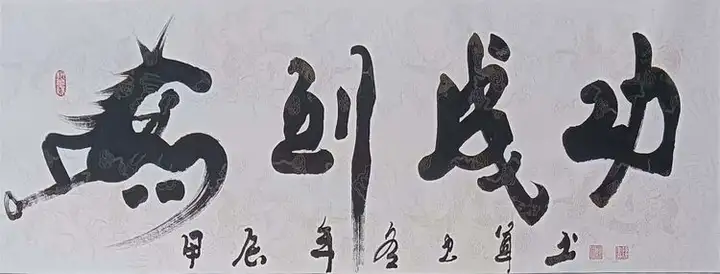 馬到成功
甲辰年冬